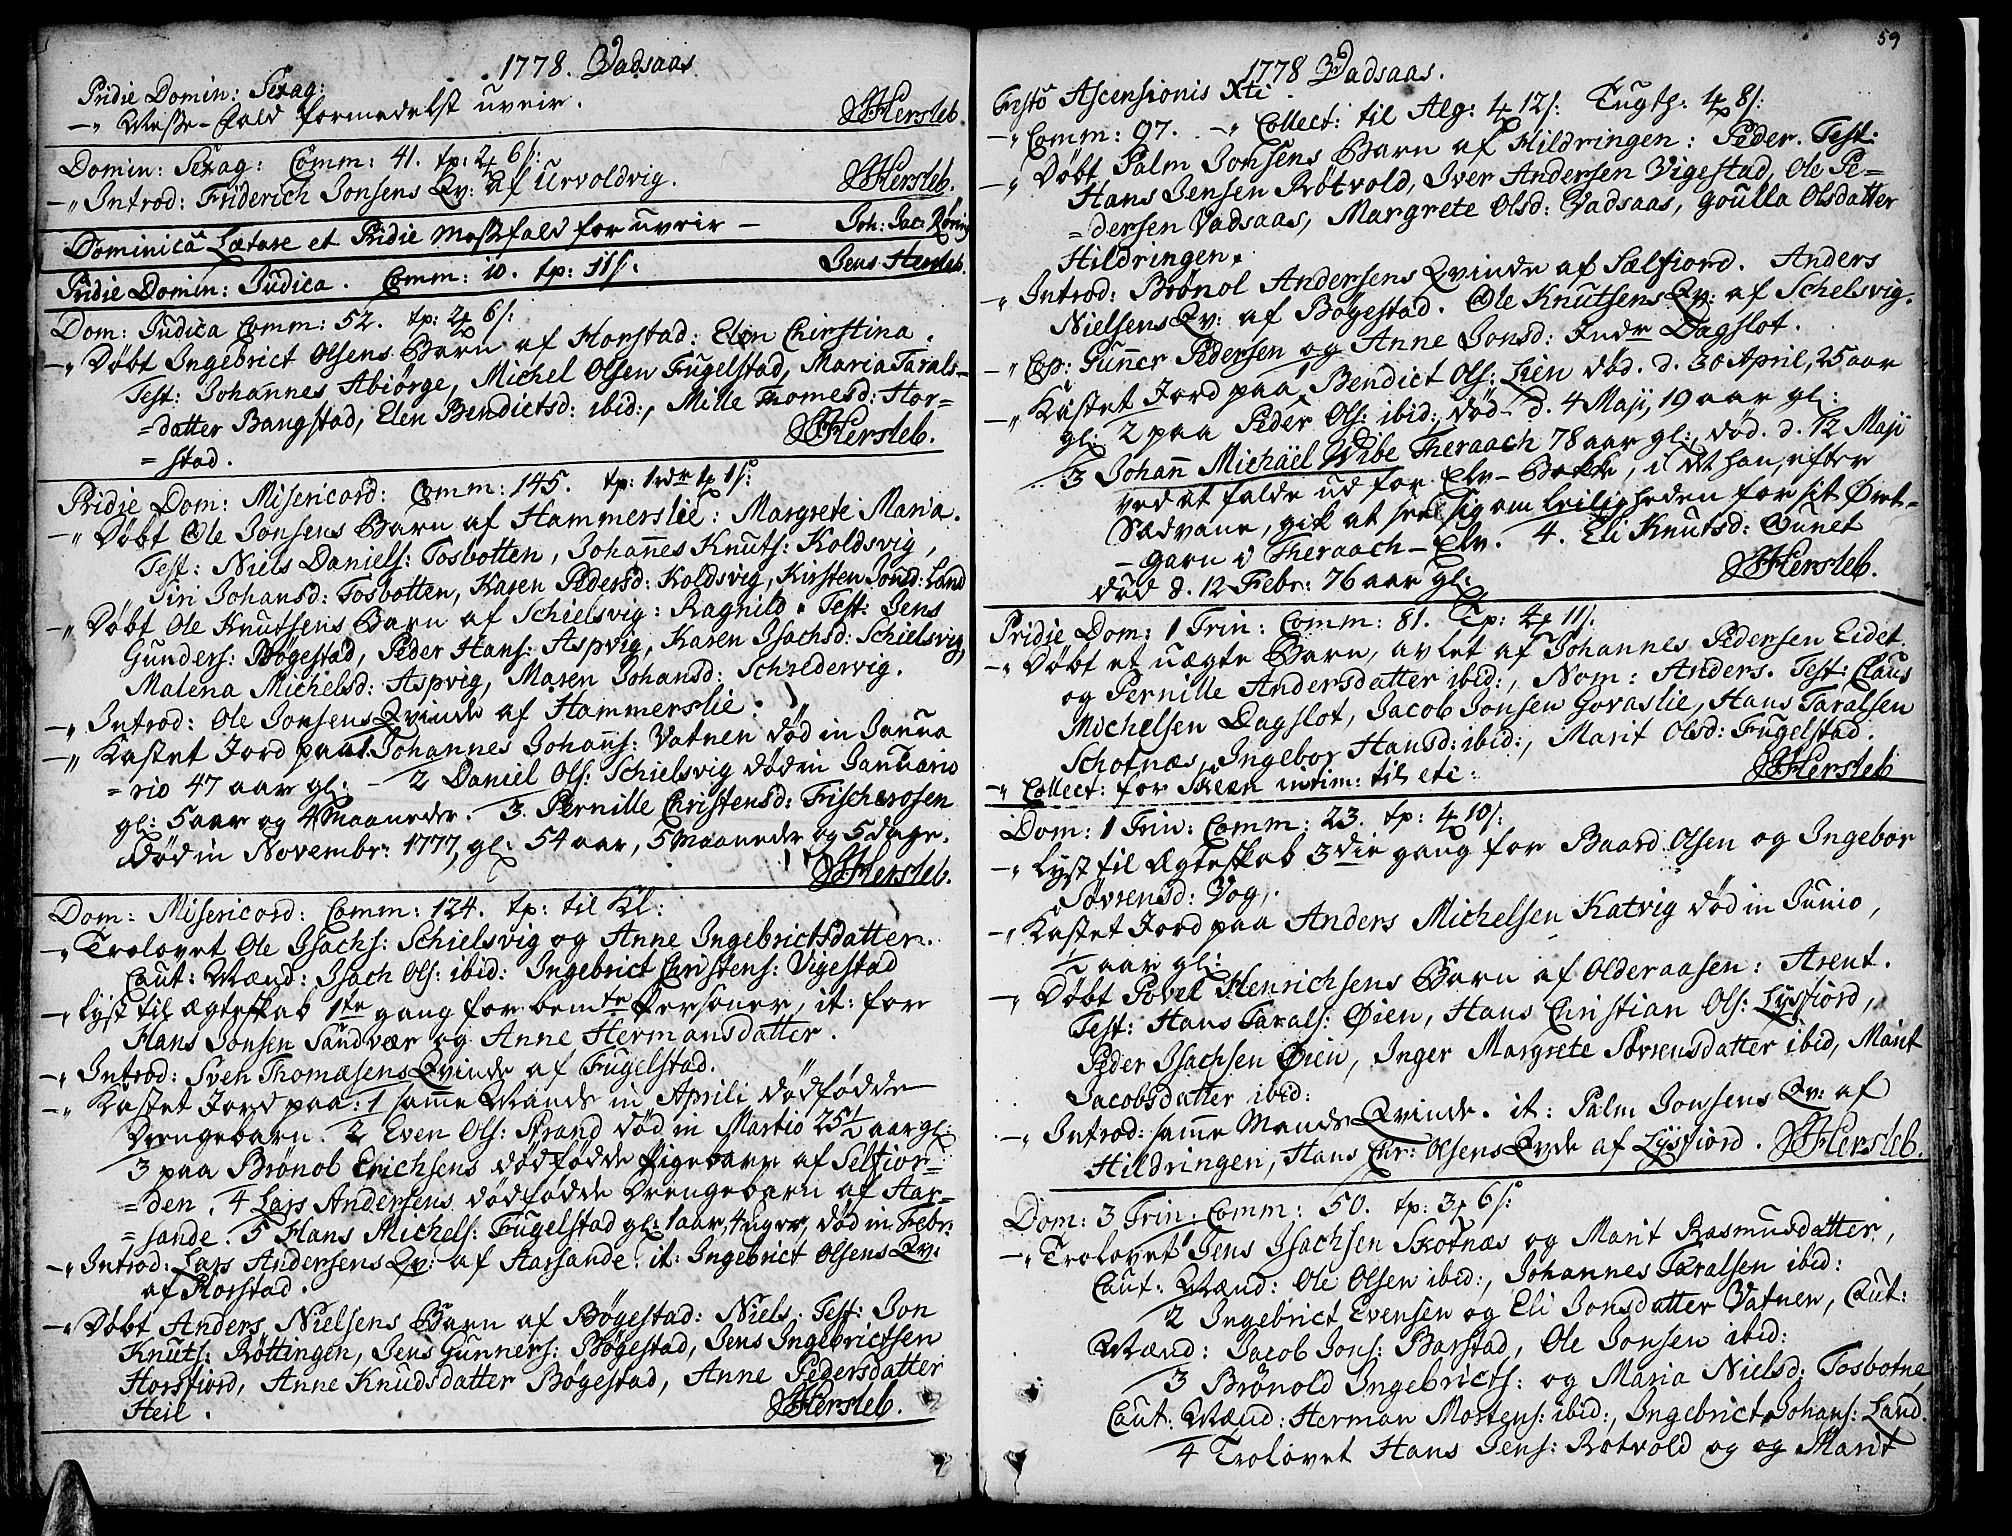 1778. Vadsaas
Pridie Domin: Sexag:
-" Messe-fald formedelst uveir.
JHersleb.
Domin: Sexag: Comm: 41. tp: 2 6/:
-" Introd: Friderich Jonsens Qv: af Urvoldvig.
JHersleb.
Dominica Lætare et Pridie Messefald for uveir - Joh: Jac: Röring
Pridie Domin: Judica. Comm: 10. tp: 11/:
Jens Hersleb.
Dom: Judica Comm: 52. tp: 2 6/:
-" Döbt Ingebrict Olsens Barn af Horstad: Elen Chirstina.
Test: Johannes Abiörge, Michel Olsen Fugelstad, Maria Tarals-
=datter Bangstad, Elen Bendictsd: ibid:, Mille Thomesd: Hor=
=stad.
JHersleb.
Pridie Dom: Misericord: Comm: 145. tp: 1 rdr 1 1/:
-" Döbt Ole Jonsens Barn af Hammerslie: Margrete Maria.
Test: Niels Daniels: Tosbotten, Johannes Knuts: Koldsvig,
Siri Johansd: Tosbotten, Karen Pedersd: Koldsvig, Kirsten Jonsd: Land
-" Döbt Ole Knutsens Barn af Schielsvig: Ragnild. Test: Jens
Gunders: Bögestad, Peder Hans: Aspvig, Karen Isachsd: Schielsvig,
Malena Michelsd: Aspvig, Maren Johansd: Schredervig.
-" Introd: Ole Jonsens Qvinde af Hammerslie.
-" Kastet Jord paa 1. Johannes Johans: Vatnen död in Janua
=rio 47 aar gl: - 2 Daniel Ols: Schielsvig död in Januario
gl: 5 aar og 4 Maaneder. 3. Pernille Christensd: Fischerosen
död in Novembr: 1777, gl: 54 aar, 5 Maaneder og 5 dage.
JHersleb.
Dom: Misericord: Comm: 124. tp: til Kl:
-" Trolovet Ole Isachs: Schielsvig og Anne Ingebrictsdatter.
Caut: Mænd: Isach Ols: ibid: Ingebrict Christens: Vigestad
-" Lyst til Ægteskab 1ste gang for bemte Personer, it: for
Hans Jonsen Sandvær og Anne Hermansdatter.
-" Introd: Sven Thomæsens Qvinde af Fugelstad.
-" Kastet Jord paa: 1 samme Mands in Aprili dödfödde
Drengebarn. 2 Even Ols: Strand död in Martio 25½ aar gl:
3 paa Brönol Erichsens dödfödde Pigebarn af Selfior=
=den. 4 Lars Andersens dödfödde Drengebarn af Aar=
=sande. 5 Hans Michels: Fugelstad gl: 1 aar, 4 uger, död in Febr:
-" Introd: Lars Andersens Qv: af Aarsande. it: Ingebrict Olsens Qv:
af Horstad.
-" Döbt Anders Nielsens Barn af Bögestad: Niels. Test: Jon
Knuts: Röttingen, Jens Gunners: Bögestad, Jens Ingebrictsen
Horsfiord, Anne Knudsdatter Bögestad, Anne Pedersdatter
Heil.
JHersleb.
59
1778 Vadsaas.
Festo Ascensionis Xti.
-" Comm: 97. -" Collect: til Alg: 1 12/: Tugth: 1 8/:
-" Döbt Palm Jonsens Barn af Hildringen: Peder. Test:
Hans Jensen Rötvold, Iver Andersen Vigestad, Ole Pe=
=dersen Vadsaas, Margrete Olsd: Vadsaas, Goulla Olsdatter
Hildringen.
-" Introd: Brönol Andersens Qvinde af Sælfiord. Anders
Nielsens Qv: af Bögestad. Ole Knutsens Qv: af Schelsvig.
-" Cop: Gunner Pedersen og Anne Jonsd: Indr Dagslot.
-" Kastet Jord paa 1 Bendict Ols: Lien död. d. 30 April, 25 aar
gl: 2 paa Peder Ols: ibid: död d. 4 Maji, 19 aar gl:
3 Johann Michäel Wibe Theraach 78 aar gl:, död. d. 12 Maji
ved at falde ud for Elv-Bakke, i det han, efter
Sædvane, gik at see sig om Leiligheden for sit Ørret-
-garn i Theraach-Elv. 4. Eli Knutsd: Ounet
död d. 12 Febr: 76 aar gl:
JHersleb.
Pridie Dom: 1 Trin: Comm: 81. Tp: 4 11/:
-" Döbt et uægte Barn, avlet af Johannes Pedersen Eidet
og Pernille Andersdatter ibid:, Nom: Anders. Test: Claus
Michelsen Dagslot, Jacob Jonsen Govaslie, Hans Taralsen
Schotnæs, Ingebor Hansd: ibid:, Marit Olsd: Fugelstad.
-" Collect: for Skeen intim: til etc:
JHersleb
Dom: 1 Trin: Comm: 23. tp: 4 10/:
-" Lyst til Ægteskab 3die gang for Baard Olsen og Ingebor
Sövrensd: Vog.
-" Kastet Jord paa Anders Michelsen Katvig död in Junio,
½ aar gl:
-" Döbt Povel Henrichsens Barn af Olderaasen: Arent.
Test: Hans Tarals: Øien, Hans Christian Ols: Lysfiord,
Peder Isachsen Øien, Inger Margrete Sövrensdatter ibid, Marit
Jacobsdatter ibid:
-" Introd: samme Mands Qvinde. it: Palm Jonsens Qv: af
Hildringen, Hans Chr: Olsens Qvde af Lysfiord. JHersleb.
Dom: 3 Trin: Comm: 50. tp: 3 6/:
-" Trolovet 1 Jens Isachsen Skotnæs og Marit Rasmusdatter,
Caut: Mænd: Ole Olsen ibid:, Johannes Taralsen ibid:
2 Ingebrict Evensen og Eli Jonsdatter Vatnen, Caut:
Mænd: Jacob Jons: Barstad, Ole Jonsen ibid:
3 Brönold Ingebricts: og Maria Nielsd: Tosbotne,
Caut: Mænd: Herman Mortens: ibid:, Ingebrict Johans: Land.
4 Trolovet Hans Jens: Rötvold og og Marit